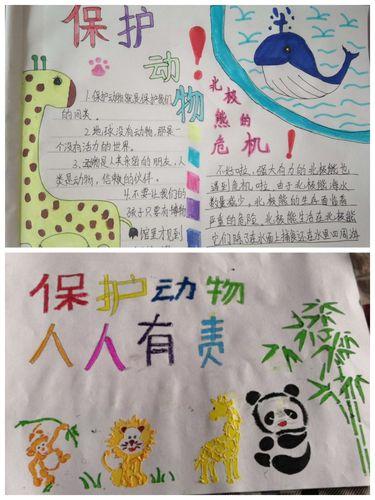 保护动物！
1.保护动物就是保护我们
的同类。
2.地球没有动物，那是一
个没有活力的世界。
3.动物是人类亲密的朋友，人
类是动物，信赖的伙伴。
4.不要让我们的
孩子只要有博物
馆里才见到
北极
熊的
危机！
不好啦，强大有力的北极熊也
遇到危机啦，由于北极熊海水
数量减少，北极熊的生存面临着
严重的危险，北极熊生活在北极熊
它们除了在水面上捕食还在水里四周游
保护动物
人人有责